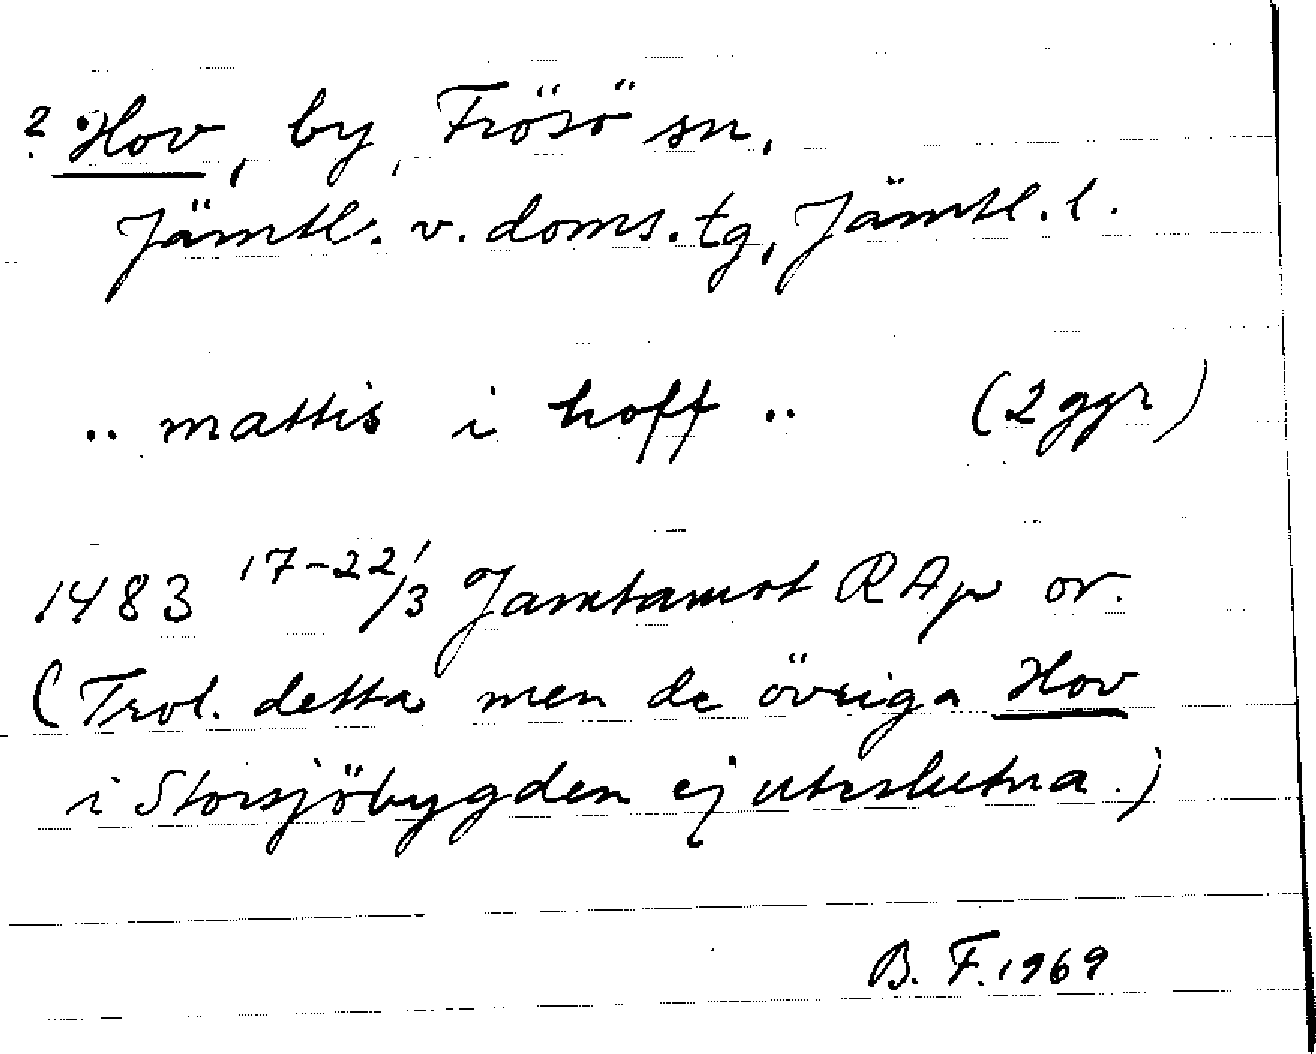 ? Hov, by, Frösö sn,
Jämtl. v. doms. tg, Jämtl. l.
.. mattis i hoff .. (2 ggr)
1483 17-22/3 Jamtamot RAp or.
(Trol. detta men de övriga Hov
i Storsjöbygden ej uteslutna.)
B. F. 1969